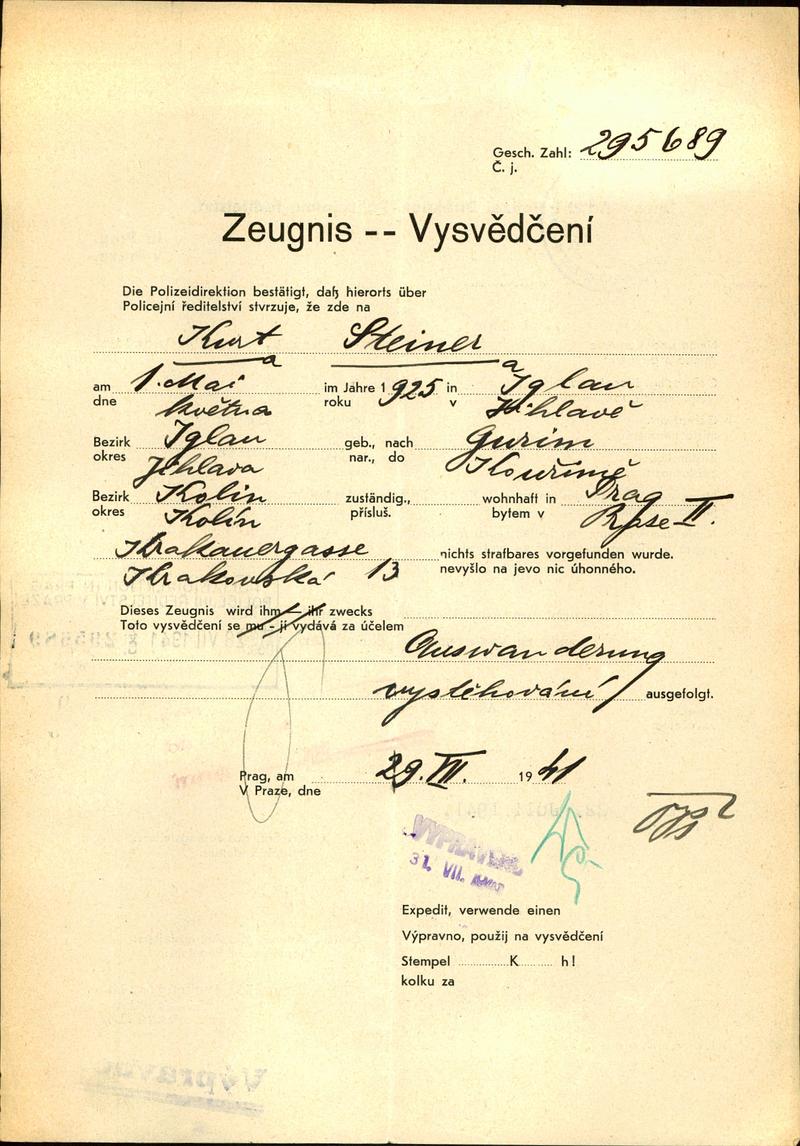 Gesch. Zahl: 295689
Č. j.
Zeugnis -- Vysvědčení
Die Polizeidirektion bestätigt, daß hierorts über
Policejní ředitelství stvrzuje, že zde na
Kurt Steiner
am 1. Mai im Jahre 1925 in Iglau
dne května roku v Jihlavě
Bezirk Iglau geb., nach Gurim
okres Jihlava nar., do Kouřimě
Bezirk Kolin zuständig., wohnhaft in Prag
okres Kolín přísluš. bytem v Praze II.
Krakauergasse nichts strafbares vorgefunden wurde.
Krakovská 13 nevyšlo na jevo nic úhonného.
Dieses Zeugnis wird ihm — ihr zwecks
Toto vysvědčení se mu - jí vydává za účelem
Auswanderung
vystěhování ausgefolgt.
Prag, am 29. VII. 1941
V Praze, dne
VYPRAVENO
31. VII.
Expedit, verwende einen
Výpravno, použij na vysvědčení
Stempel K h!
kolku za